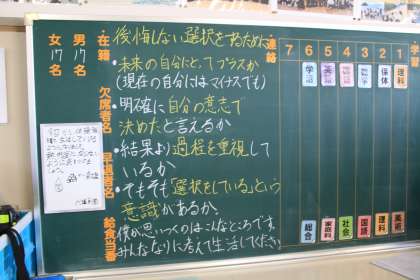 後悔しない選択をするために
・未来の自分にとってプラスか
(現在の自分にはマイナスでも)
・明確に自分の意志で
決めたと言えるか
・結果より過程を重視して
いるか
・そもそも「選択をしている」という
意識があるか。
僕が思いつくのはこんなところです。
みんななりに考えて生活してください。
連絡
在籍
男 17名
女 17名
欠席者名
早退者名
給食当番
学習
7 6 5 4 3 2 1
学活 英語 数学 国語 保体 理科
総合 家庭科 社会 国語 理科 美術